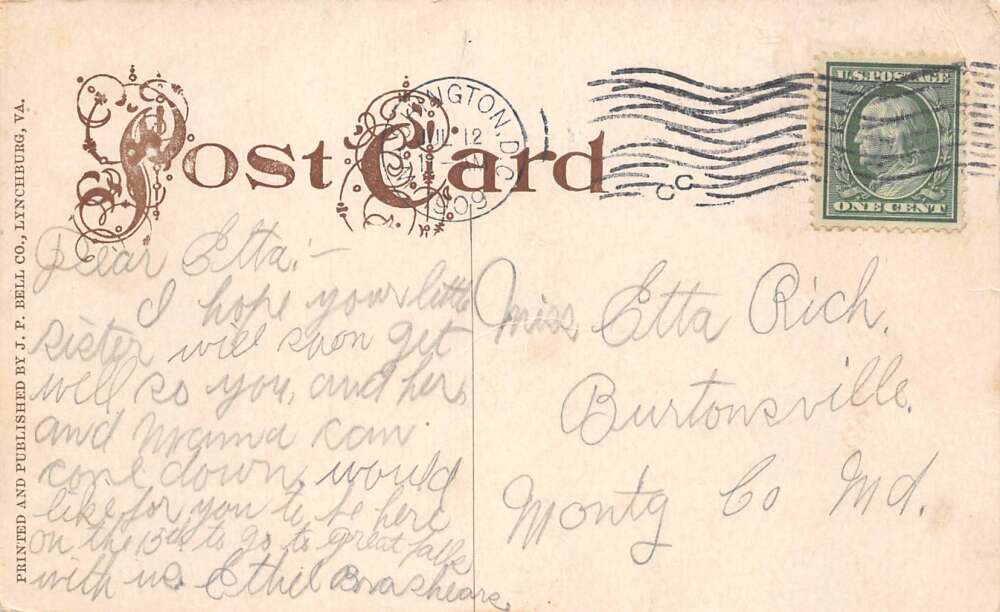 PRINTED AND PUBLISHED BY J. P. BELL CO., LYNCHBURG, VA.
Post Card
WASHINGTON, D.C.
JUL 12
1909
U.S. POSTAGE
ONE CENT
Dear Etta:-
I hope your little
sister will soon get
well so you, and her
and Mama can
come down, would
like for you to be here
on the 15th to go to great falls
with us. Ethel Brashears.
Miss Etta Rich.
Burtonsville.
Montg Co Md.